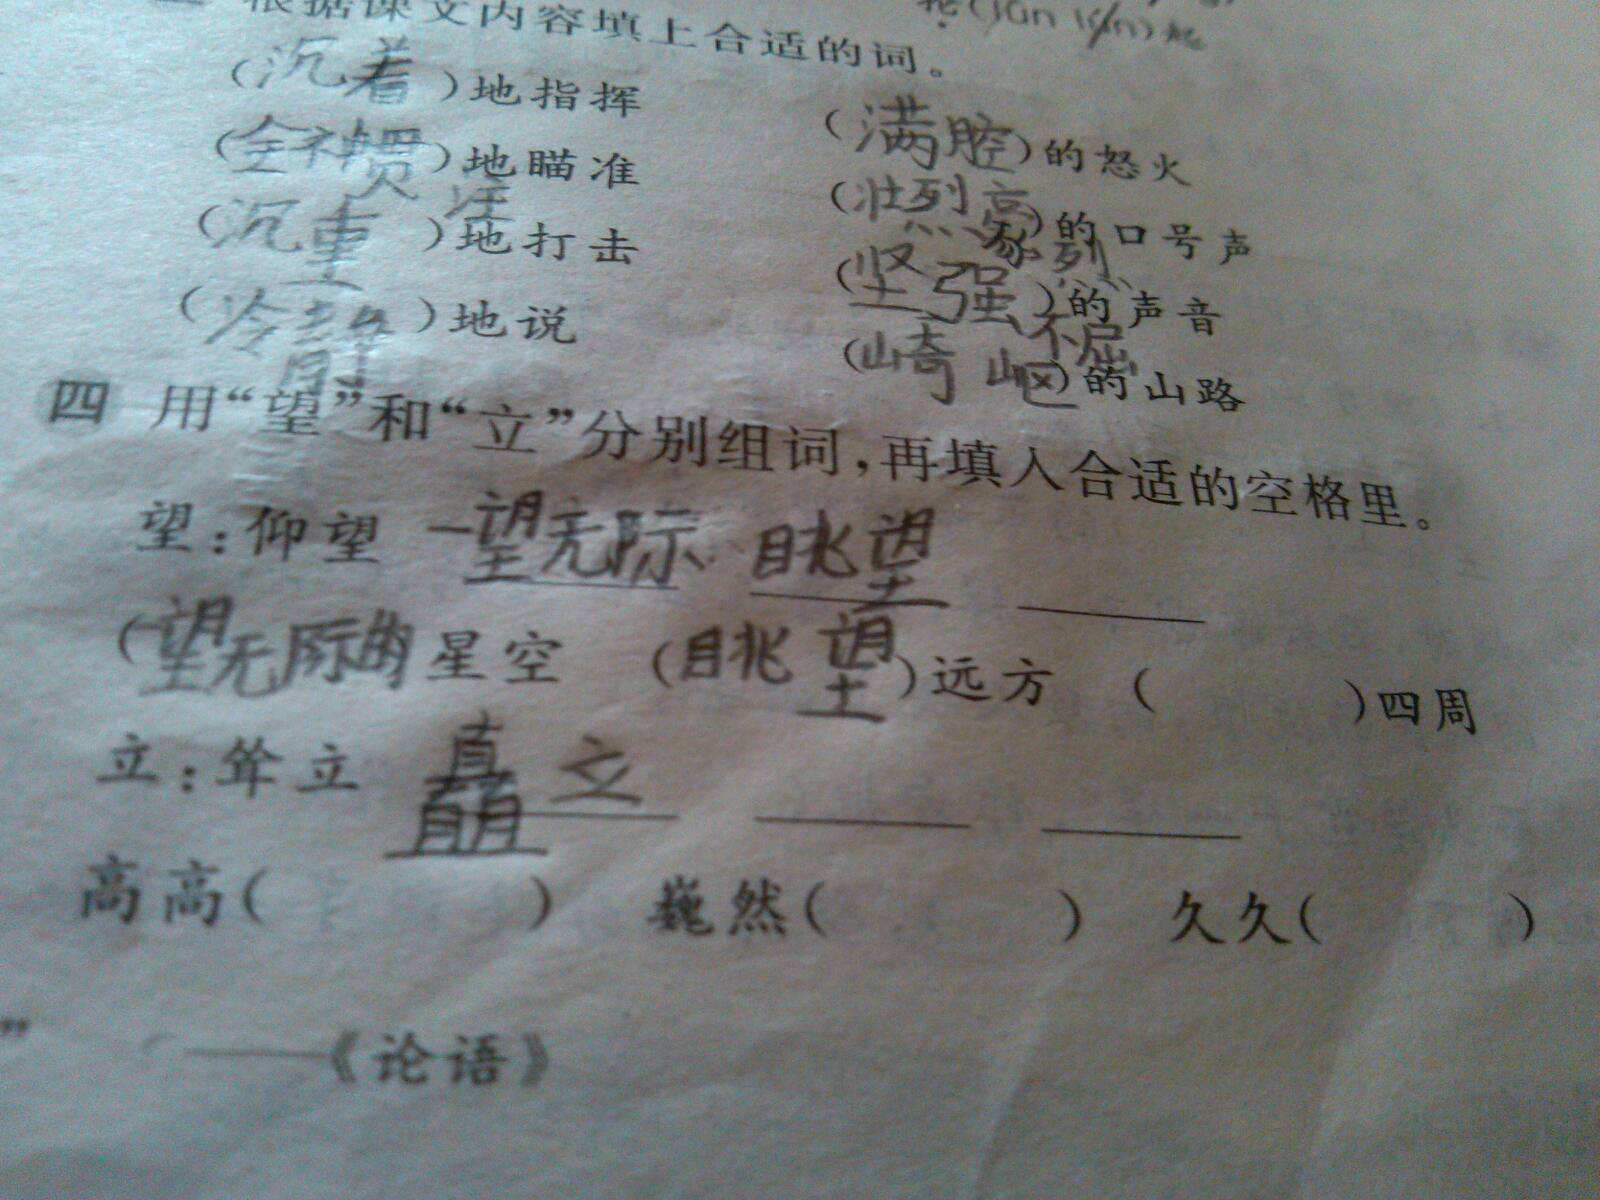 根据课文内容填上合适的词。
(沉着)地指挥 (满腔)的怒火
(全神贯注)地瞄准 (壮烈豪)的口号声
(沉重)地打击 (坚强不屈)的声音
(冷静)地说 (崎岖)的山路
四 用“望”和“立”分别组词,再填入合适的空格里。
望:仰望 一望无际 眺望
(望无际的 星空 (眺望)远方 ( )四周
立:耸立 矗立
高高( ) 巍然( ) 久久( )
” ——《论语》